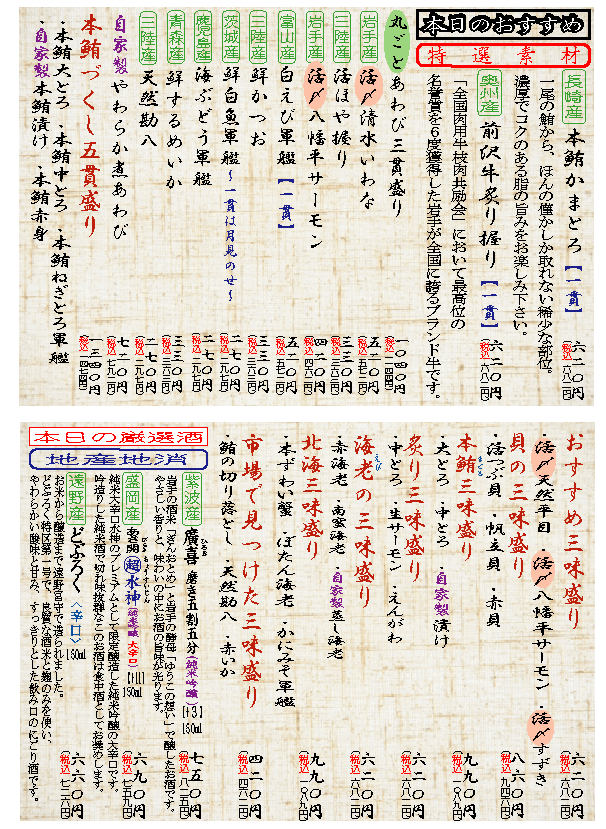 本日のおすすめ
特選素材
長崎産 本鮪かまとろ【一貫】 六二〇円 (税込 六八二円)
一尾の鮪から、ほんの僅かしか取れない稀少な部位。
濃厚でコクのある脂の旨みをお楽しみ下さい。
奥州産 前沢牛炙り握り【一貫】 六二〇円 (税込 六八二円)
「全国肉用牛枝肉共励会」において最高位の
名誉賞を6度獲得した岩手が全国に誇るブランド牛です。
丸ごとあわび三貫盛り 一〇四〇円 (税込 一一四四円)
岩手産 活〆清水いわな 五二〇円 (税込 五七二円)
三陸産 活ほや握り 三三〇円
岩手産 活〆八幡平サーモン 四二〇円
富山産 白えび軍艦【一貫】 五二〇円 (税込 五七二円)
三陸産 鮮かつお 三三〇円
茨城産 鮮白魚軍艦〜一貫は月見のせ〜 二七〇円 (税込 二九七円)
鹿児島産 海ぶどう軍艦 二七〇円 (税込 二九七円)
青森産 鮮するめいか 三三〇円
三陸産 天然勘八 二七〇円 (税込 二九七円)
自家製やわらか煮あわび 七二〇円 (税込 七九二円)
本鮪づくし五貫盛り 一三四〇円 (税込 一四七四円)
・本鮪大とろ ・本鮪中とろ ・本鮪ねぎとろ軍艦
・自家製本鮪漬け ・本鮪赤身
おすすめ三味盛り 六二〇円 (税込 六八二円)
・活〆天然平目 ・活〆八幡平サーモン ・活〆すずき
貝の三味盛り 八六〇円 (税込 九四六円)
・活つぶ貝 ・帆立貝 ・赤貝
本鮪三味盛り 九二〇円
・大とろ ・中とろ ・自家製漬け
炙り三味盛り 六二〇円 (税込 六八二円)
・中とろ ・生サーモン ・えんがわ
海老の三味盛り 六二〇円 (税込 六八二円)
・赤海老 ・南蛮海老 ・自家製蒸し海老
北海三味盛り 九九〇円 (税込 一〇八九円)
・本ずわい蟹 ・ぼたん海老 ・かにみそ軍艦
市場で見つけた三味盛り 四二〇円 (税込 四六二円)
・鮪の切り落とし ・天然勘八 ・赤いか
本日の厳選酒
地産地消
紫波産 廣喜 磨き五割五分(純米吟醸)【+3】 180ml 七五〇円 (税込 八二五円)
岩手の酒米「ぎんおとめ」と岩手の酵母「ゆうこの想い」で醸したお酒です。
やさしい香りと、味わいの中にお酒の旨味が光ります。
盛岡産 鷲の尾 超水神(純米吟醸 大辛口)【+11】 180ml 六九〇円 (税込 七五九円)
純米大辛口水神のプレミアムとして限定醸造した純米吟醸の大辛口です。
吟造りした純米酒で切れ味抜群なこのお酒は食中酒としてお奨めします。
遠野産 どぶろく〈辛口〉 180ml 六六〇円 (税込 七二六円)
お米から醸造まで遠野宮守で造られました。
どぶろく特区第一号で、良質な酒米と麹のみを使い、
やわらかい酸味と甘み、すっきりとした飲み口のにごり酒です。